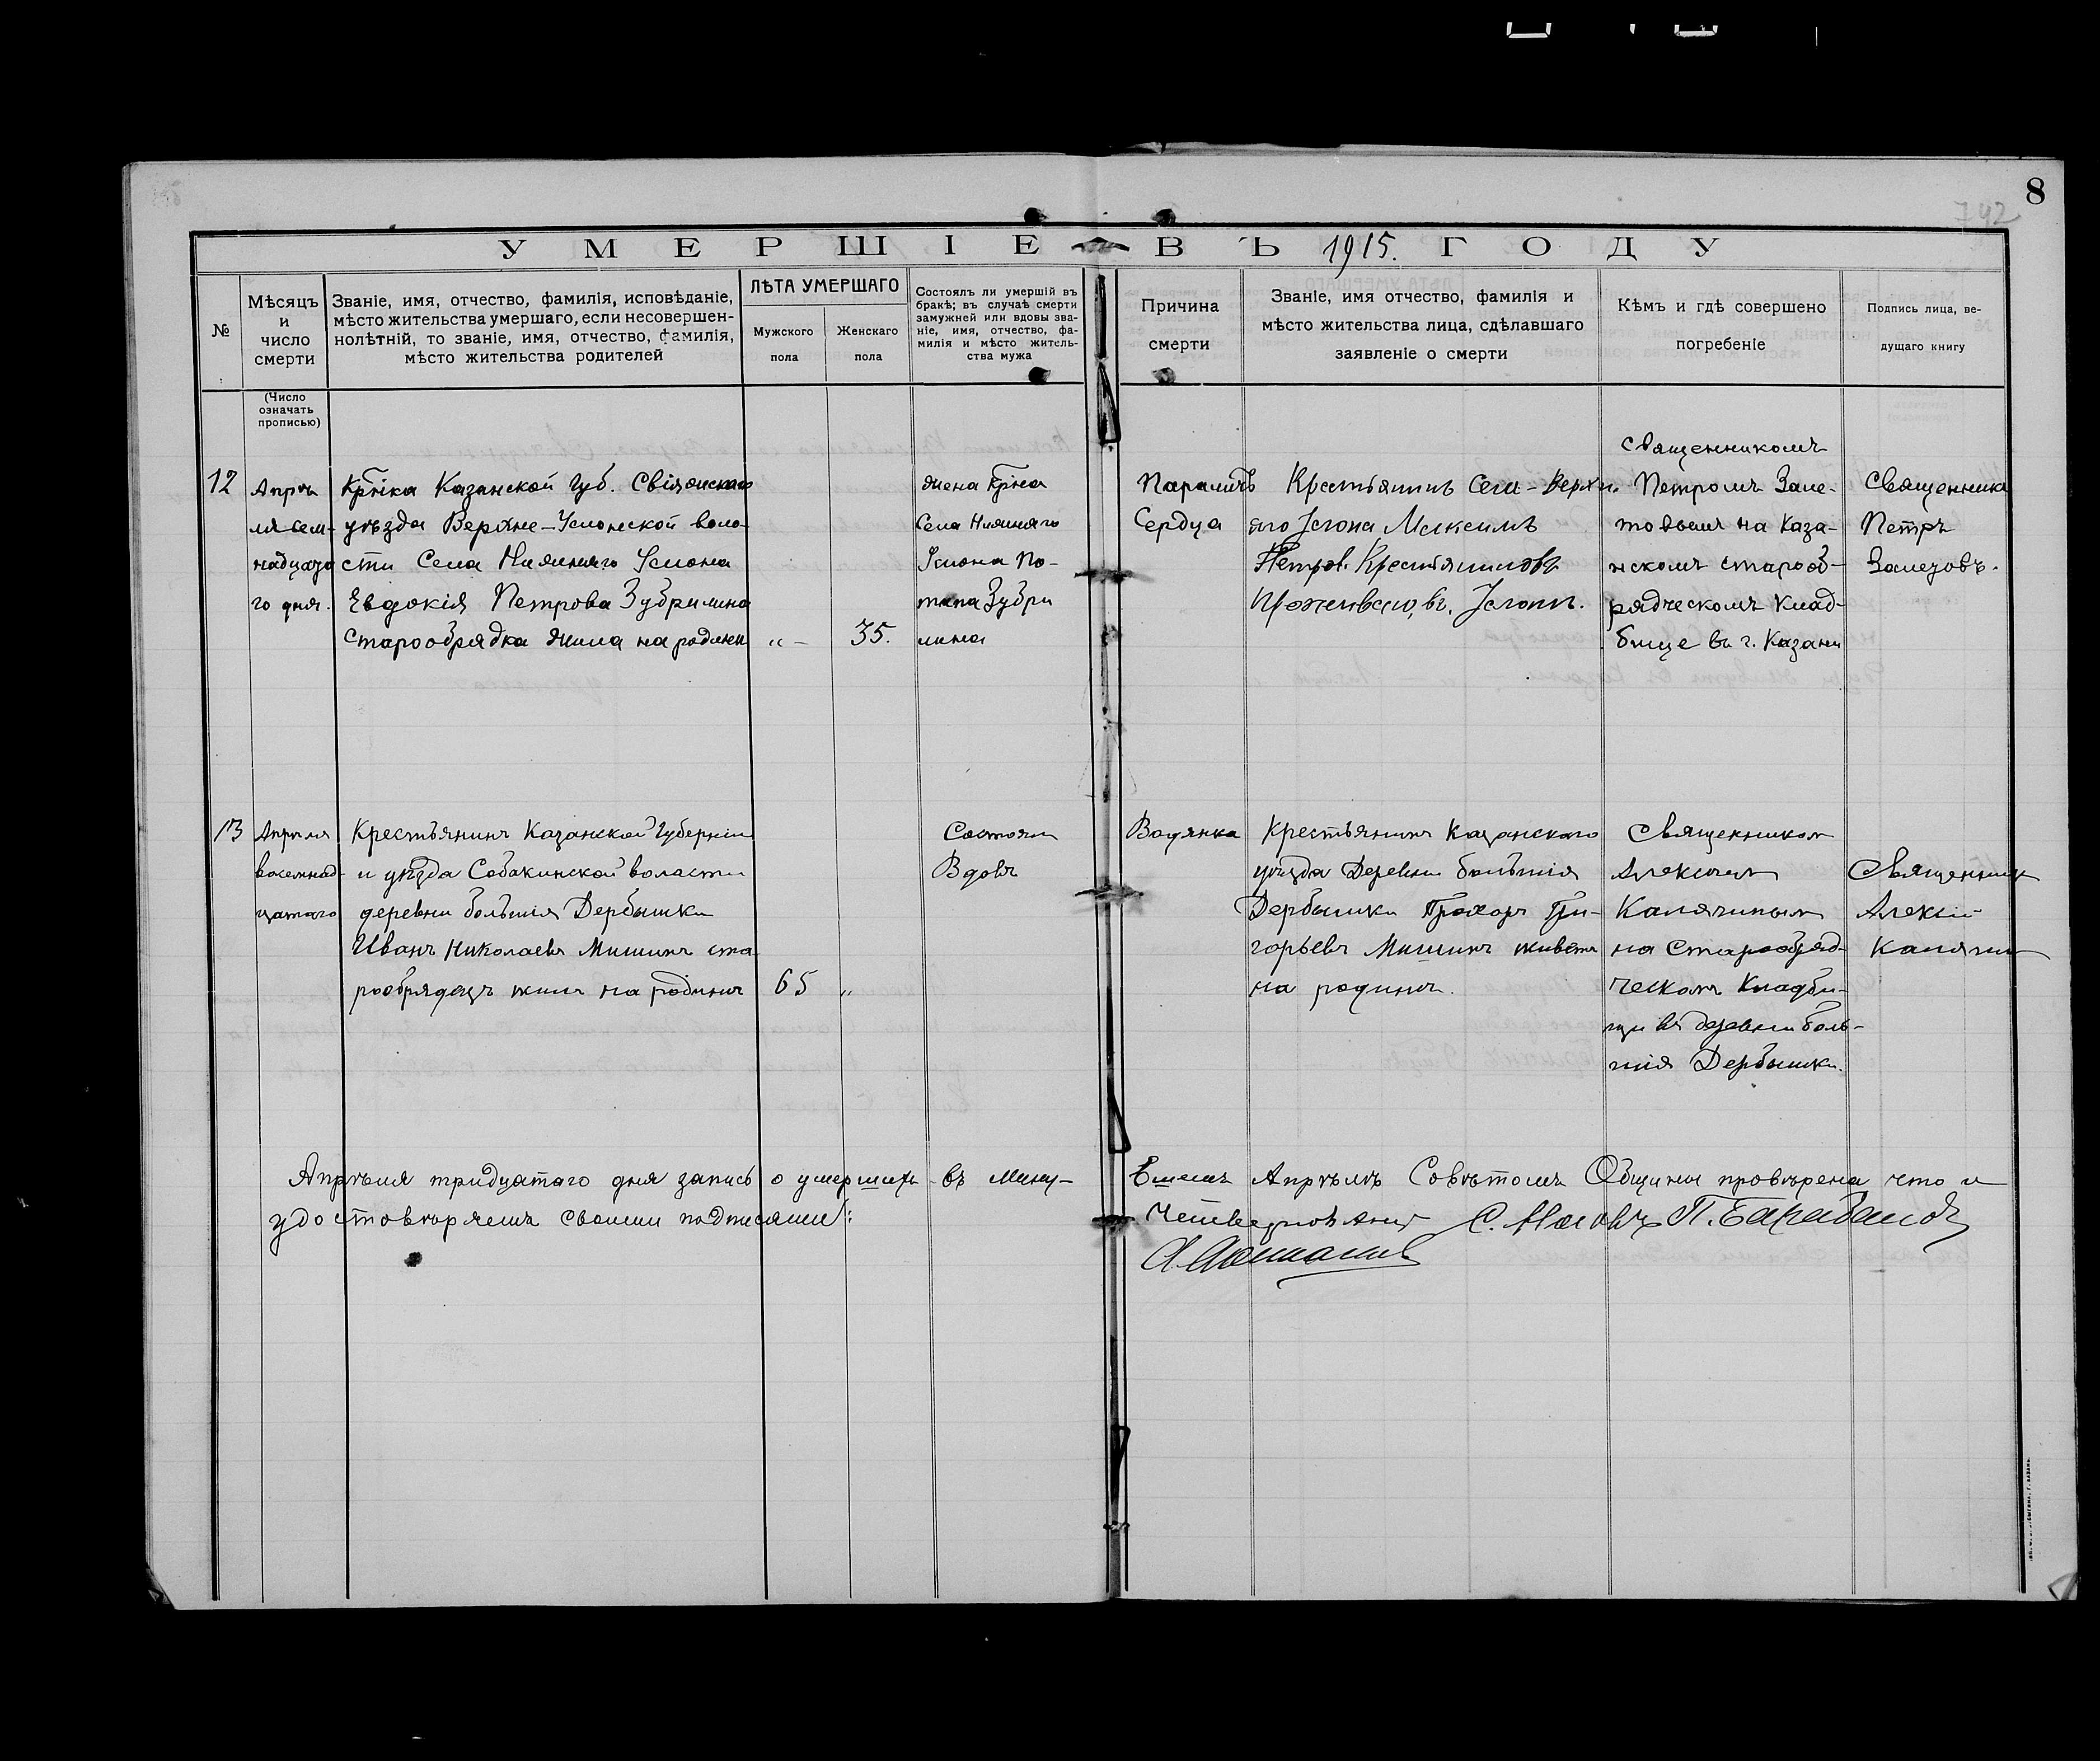 8
742
УМЕРШІЕ ВЪ 1915. ГОДУ
№
Мѣсяцъ
и
число
смерти
Званіе, имя, отчество, фамилія, исповѣданіе,
мѣсто жительства умершаго, если несовершен-
нолѣтній, то званіе, имя, отчество, фамилія,
мѣсто жительства родителей
ЛѢТА УМЕРШАГО
Мужского
пола
Женскаго
пола
Состоялъ ли умершій въ
бракѣ; въ случаѣ смерти
замужней или вдовы зва-
ніе, имя, отчество, фа-
милія и мѣсто житель-
ства мужа
Причина
смерти
Званіе, имя отчество, фамилія и
мѣсто жительства лица, сдѣлавшаго
заявленіе о смерти
Кѣмъ и гдѣ совершено
погребеніе
Подпись лица, ве-
дущаго книгу
(Число
означать
прописью)
12
Апрѣ
ля сем-
надцата
го дня.
Кр̅нка Казанской Губ. Свіяжскаго
уѣзда Верхне-Услонской воло-
сти Села Нижняго Услона
Евдокія Петрова Зубрилина
старообрядка жила на родинѣ
„ –
35.
жена Кр̅на
Села Нижняго
Услона По-
тапа Зубри
лина
Параличъ
Сердца
Крестьянинъ Села-Верхн.
яго Услона Максимъ
Петров. Крестьяниновъ
Проживаю, въ. Услонѣ.
Священникомъ
Петромъ Зале-
товымъ на Каза-
нскомъ старооб-
рядческомъ Клад-
бище въ г. Казани
Священникъ
Петръ
Залетовъ.
13
Апрѣля
восемнад-
цатаго
Крестьянинъ Казанской Губерніи
и уѣзда Собакинской воласти
деревни большія Дербышки
Иванъ Николаевъ Мишинъ ста
рообрядецъ жилъ на родинѣ
65
„
Состоялъ
Вдовъ
Водянка
Крестьянинъ Казанскаго
уѣзда Деревни большія
Дербышки Прохоръ Гри-
горьевъ Мишинъ живетъ
на родинѣ.
Священником
Алексиемъ
Калягинымъ
на Старообряд-
ческомъ Кладби-
щи въ деревни боль-
шія Дербышки.
Священникъ
Алексій
Калягинъ
Апрѣля тридцатаго дня запись о умершихъ въ Мину-
вшемъ Апрѣлѣ Совѣтомъ Общины провѣрена что и
удостовѣряемъ своими подписями:
П. Барабанов